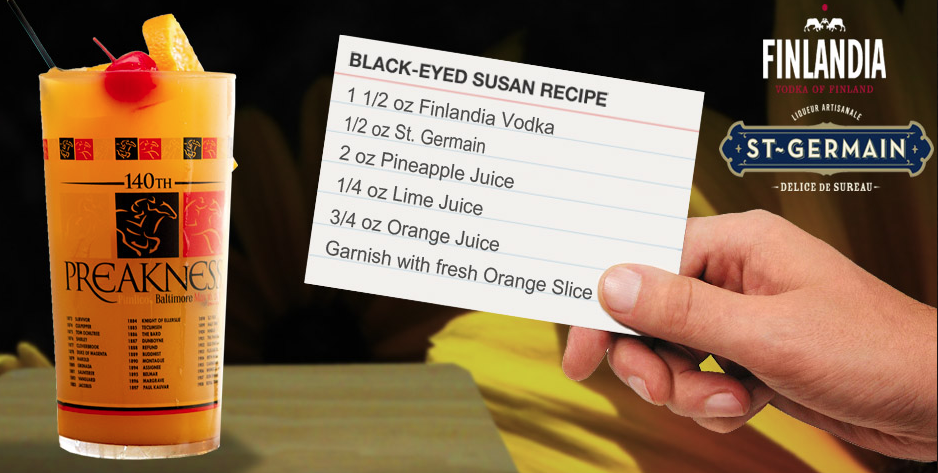 140TH
PREAKNESS
Pimlico, Baltimore
BLACK-EYED SUSAN RECIPE
1 1/2 oz Finlandia Vodka
1/2 oz St. Germain
2 oz Pineapple Juice
1/4 oz Lime Juice
3/4 oz Orange Juice
Garnish with fresh Orange Slice
FINLANDIA
VODKA OF FINLAND
LIQUEUR ARTISANALE
ST~GERMAIN
~DELICE DE SUREAU~